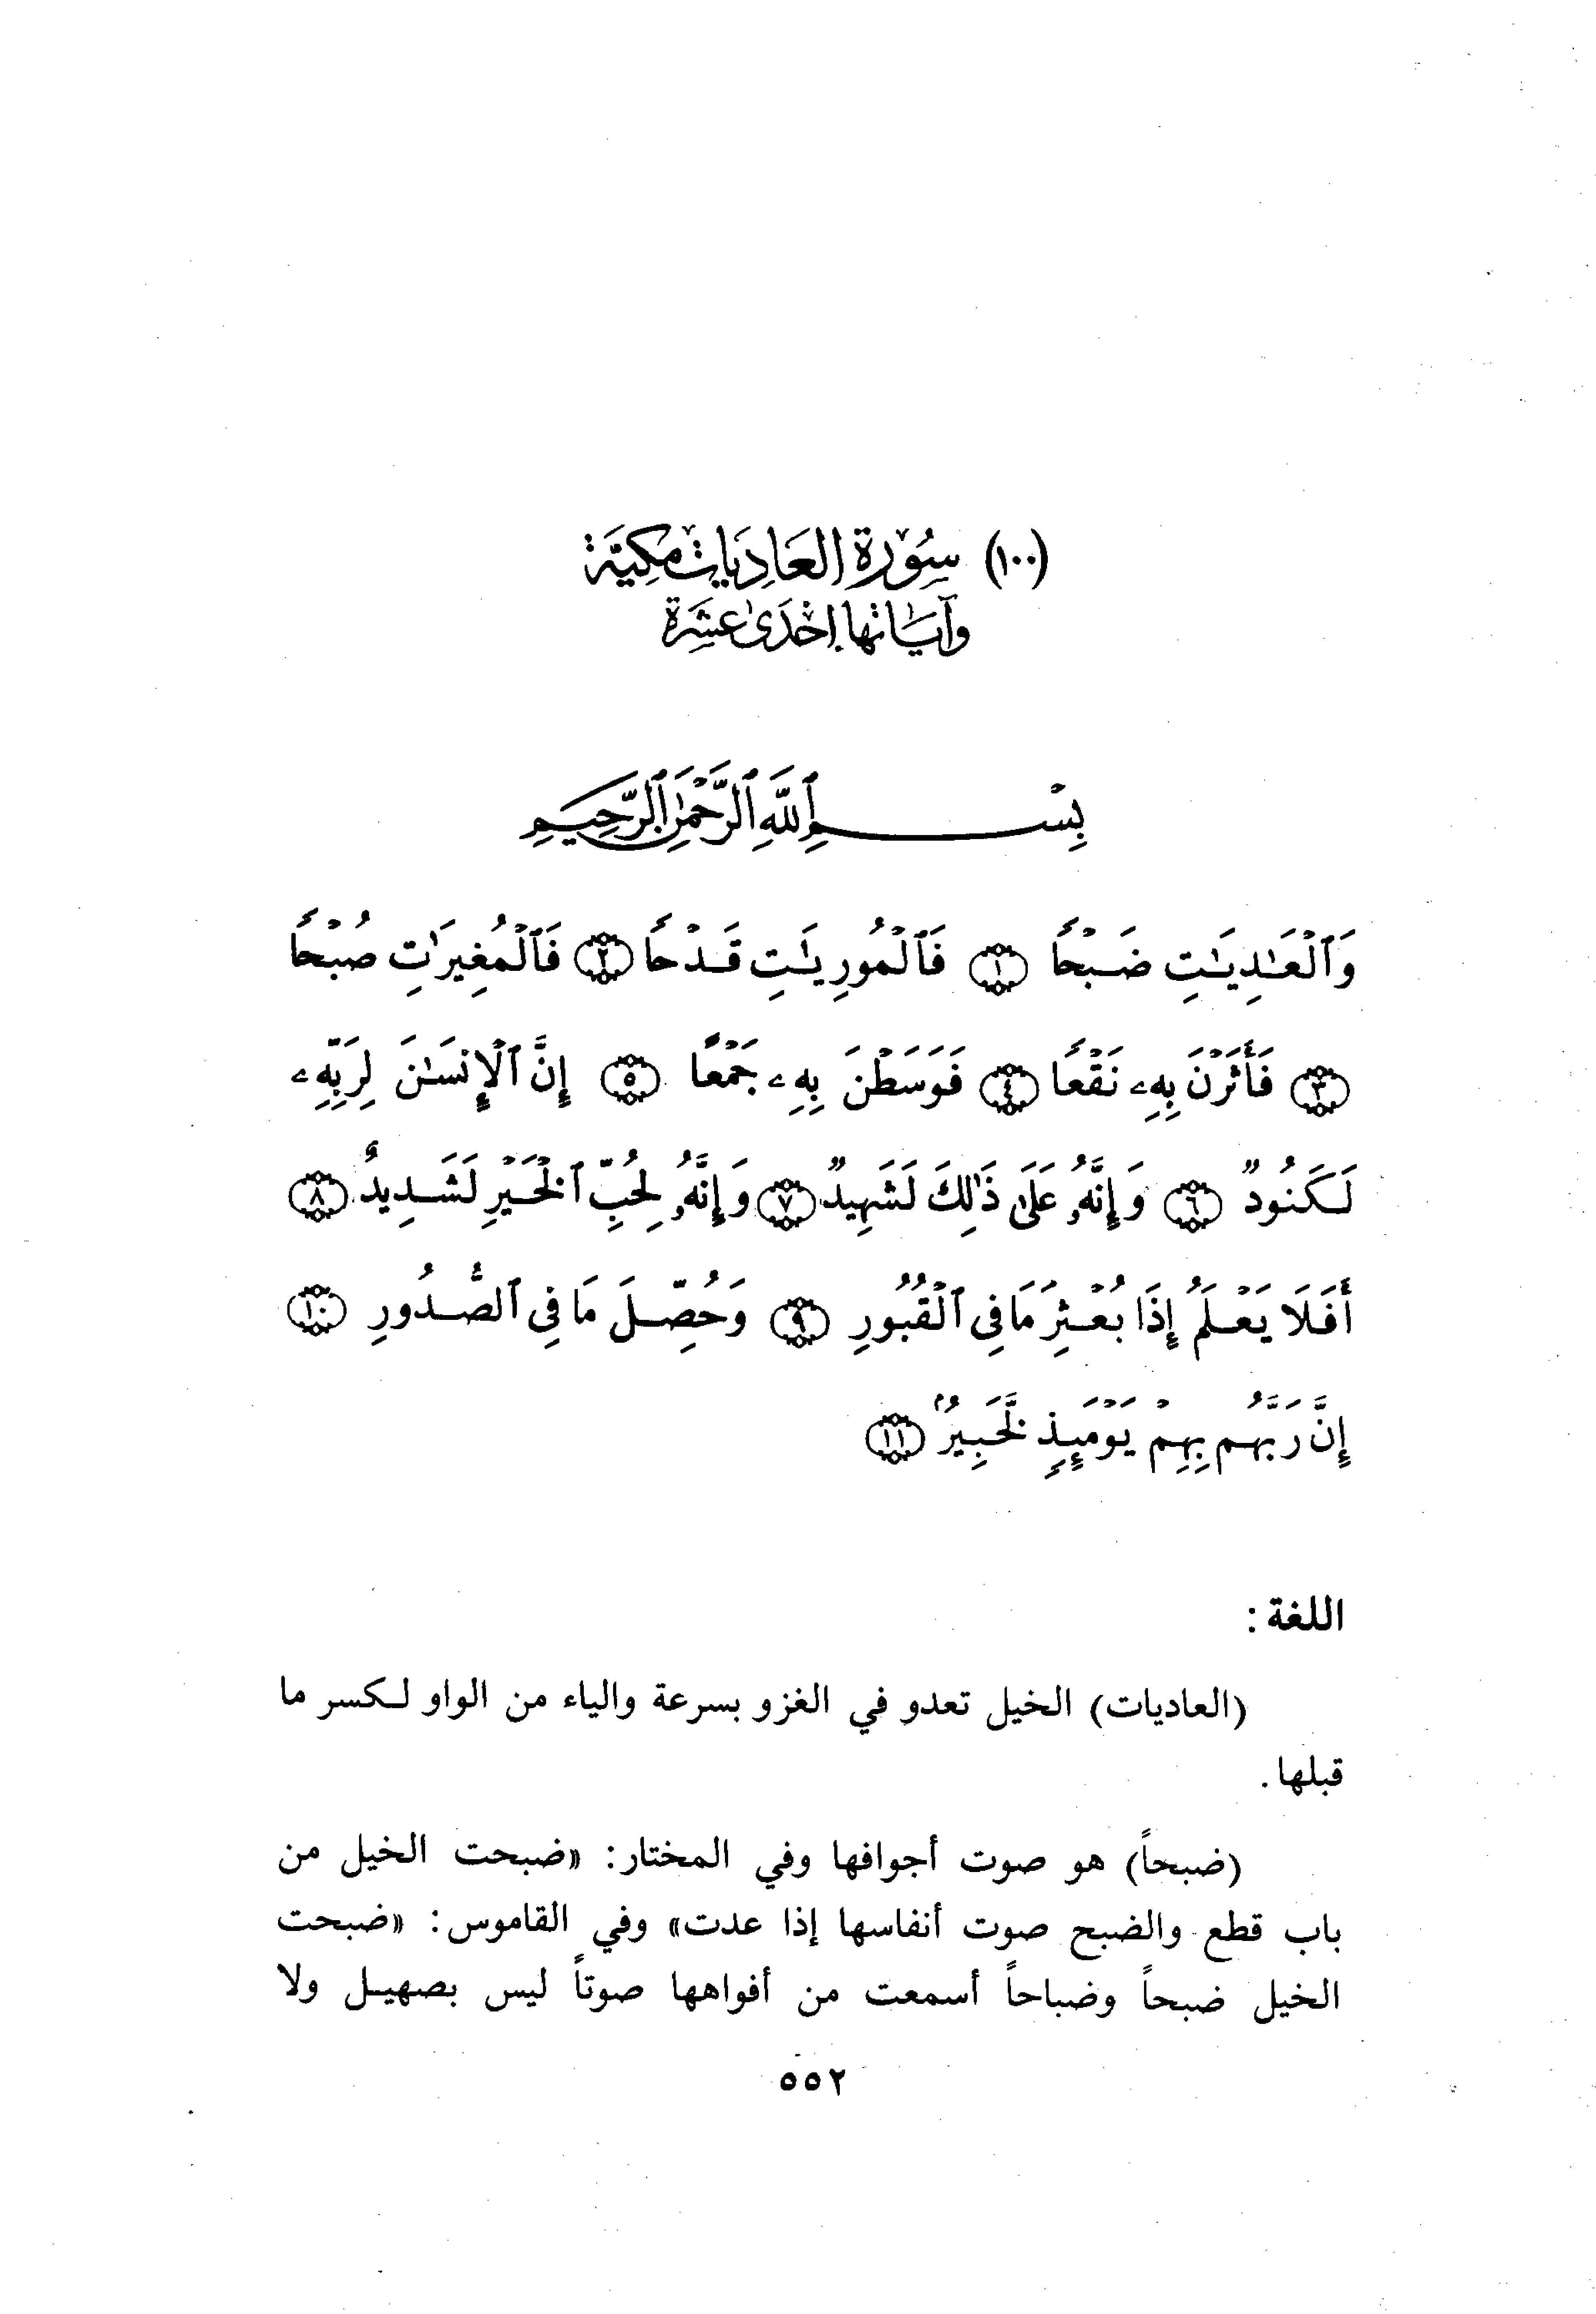 (١٠٠) سُورة العَادِيَات مَكِيَّة
وآيَاتها إحْدَىٰ عَشَرة
بِسْمِ ٱللَّهِ ٱلرَّحْمَٰنِ ٱلرَّحِيمِ
وَٱلْعَٰدِيَٰتِ ضَبْحًا ﴿١﴾ فَٱلْمُورِيَٰتِ قَدْحًا ﴿٢﴾ فَٱلْمُغِيرَٰتِ صُبْحًا
﴿٣﴾ فَأَثَرْنَ بِهِۦ نَقْعًا ﴿٤﴾ فَوَسَطْنَ بِهِۦ جَمْعًا ﴿٥﴾ إِنَّ ٱلْإِنسَٰنَ لِرَبِّهِۦ
لَكَنُودٌ ﴿٦﴾ وَإِنَّهُۥ عَلَىٰ ذَٰلِكَ لَشَهِيدٌ ﴿٧﴾ وَإِنَّهُۥ لِحُبِّ ٱلْخَيْرِ لَشَدِيدٌ ﴿٨﴾
أَفَلَا يَعْلَمُ إِذَا بُعْثِرَ مَا فِى ٱلْقُبُورِ ﴿٩﴾ وَحُصِّلَ مَا فِى ٱلصُّدُورِ ﴿١٠﴾
إِنَّ رَبَّهُم بِهِمْ يَوْمَئِذٍ لَّخَبِيرٌ ﴿١١﴾
اللغة :
(العاديات) الخيل تعدو في الغزو بسرعة والياء من الواو لكسر ما
قبلها .
(ضبحاً) هو صوت أجوافها وفي المختار: «ضبحت الخيل من
باب قطع والضبح صوت أنفاسها إذا عدت» وفي القاموس: «ضبحت
الخيل ضبحاً وضباحاً أسمعت من أفواهها صوتاً ليس بصهيل ولا
٥٥٢